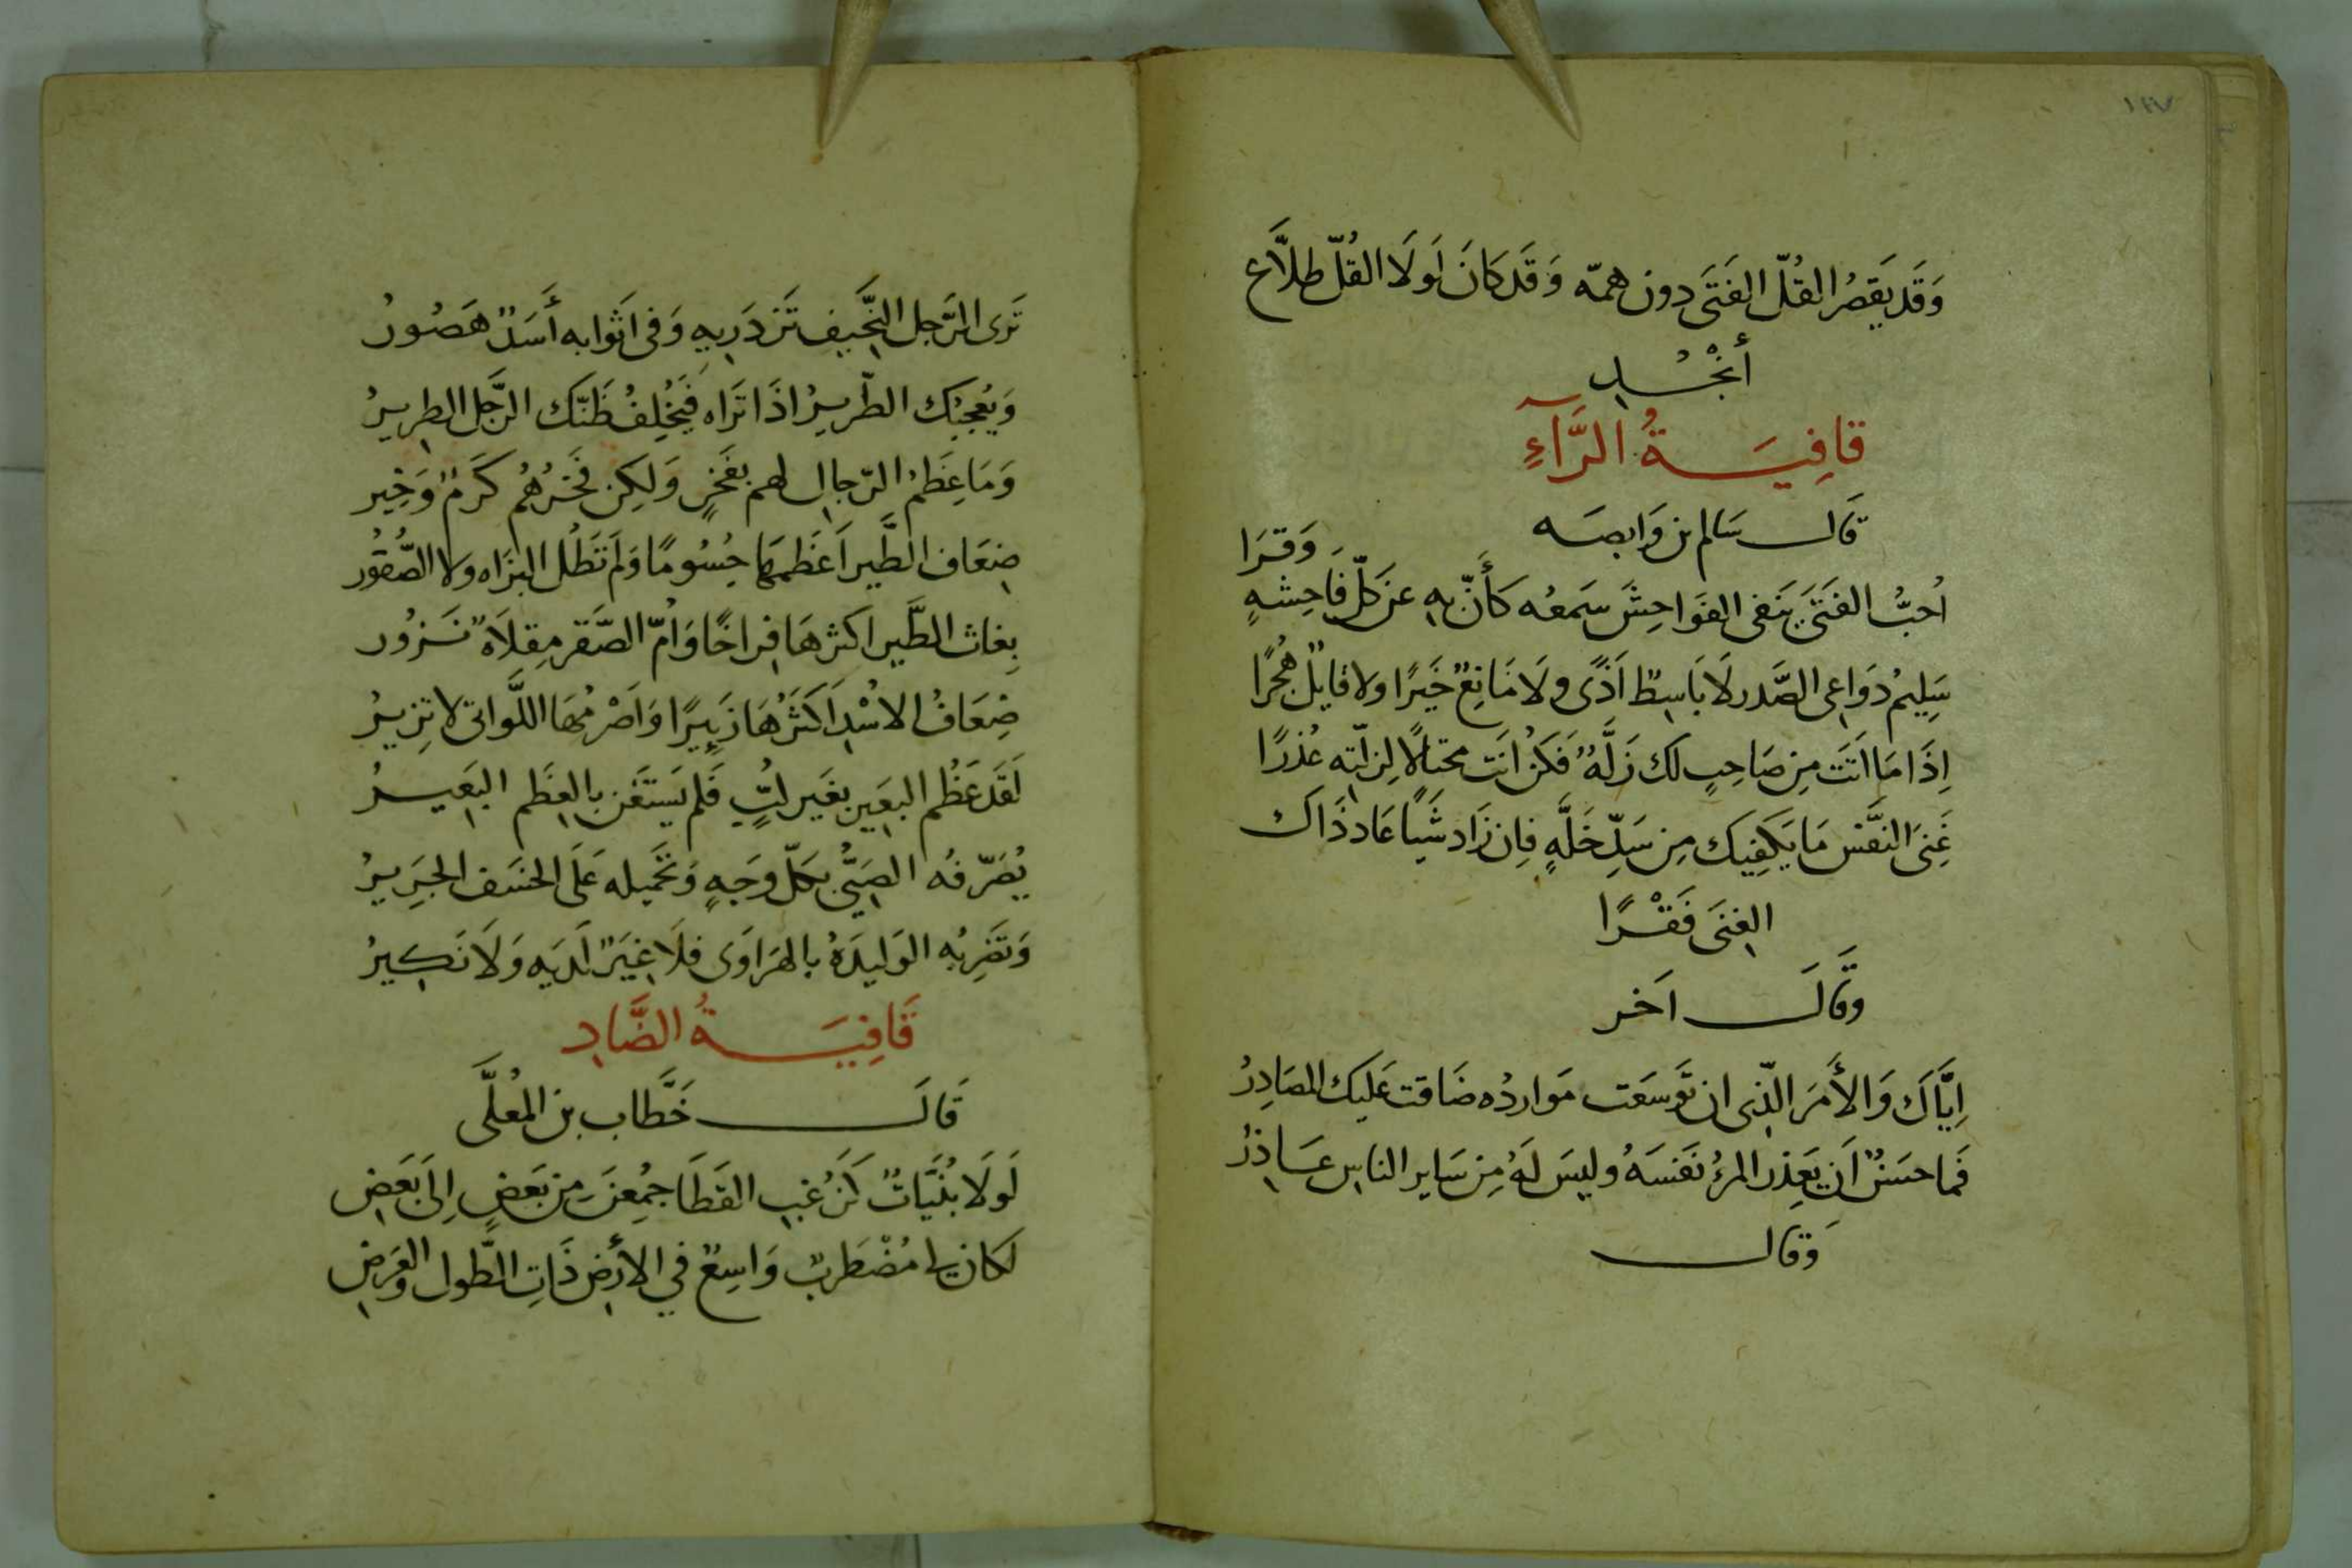 ١٢٧
وَقَد يَقصُر القُلّ الفَتَى دون همّه وَقَد كَانَ لَولَا القُلّ طلَّاع
أنْجُــدِ
قافِيَــةُ الرَّآءِ
قَالـــ سَالم بن وَابصَه
أُحبُّ الفَتَى يَنفى الفَوَاحِشَ سَمعُه كَأَنّ بهِ عَن كلّ فَاحِشهٍ وَقرَا
سَلِيمُ دَوَاعِى الصَّدر لَا بَاسِطٌ اَذًى ولَا مَانِعٌ خَيرًا ولا قايلٌ هُجُرًا
اِذَا مَا اَتَت مِن صَاحِبٍ لَك زَلَّهٌ فَكُن اَنتَ محتَالًا لِزلّته عُذرًا
غِنَى النَّفس مَا يَكفِيك مِن سَدِّ خَلَّهٍ فان زَاد شَيًا عَاد ذَاك
الغنَى فَقْــرًا
وقَالَـــ اَخر
اِيَّاكَ وَالأَمرَ الّذى ان تَوسّعَت مَواردُه ضَاقت عَليك المصَادِرُ
فَما حسَنٌ اَن يَعذِر المرءُ نَفسَهُ وليسَ لَهُ مِن سَاير الناسِ عَــاذِرُ
وَقال
تَرى الرَّجل النَّحِيف تَزدَرِيهِ وَفى اَثوابه أَسَدٌ هَصُورُ
وَيُعجبُك الطّرِيرُ اذَا تَرَاه فَيُخلِفُ ظَنّك الرَّجل الطريرُ
وَمَا عِظَمُ الرّجالِ لهم بفَخرٍ وَلكِن فَخرُهُم كَرَمٌ وَخِير
ضِعَاف الطَّير اَعظَمهَا جُسُومًا وَلَم تَطُل البزَاه ولا الصُّقوُر
بِغاث الطَّير اكثرهَا فِراخًا وَأُمّ الصَّقر مِقلَاةٌ نَــزُور
ضِعَافُ الاسْدِ اَكثَرُهَا زَئِيرًا وَاَصْرمُهَا اللَّواتى لا تزِيرُ
لَقَد عَظُم البعَير بغَير لُبٍّ فَلم يَستَغن بالعِظَم البَعيــرُ
يُصَرّفُه الصَبيُّ بكلّ وَجَهٍ وَتَحَمِله عَلَى الخَسَف الجَرِيرُ
وَتَضرِبُه الوَليدَهُ بالهرَاوَى فلَا غِيَرٌ لَدَيه وَلَا نَكِيرُ
قَافِيَــةُ الضَّادِ
قَالَـــ خَطَّاب بن المُعلَّى
لَولَا بُنَيَّاتٌ كَزُغبِ القَطَا جُمِعنَ مِن بَعَضٍ اِلَى بَعَضِ
لَكان لِى مُضْطَربٌ وَاسِعٌ في الأرَضِ ذَاتِ الطُّول والعَرَضِ